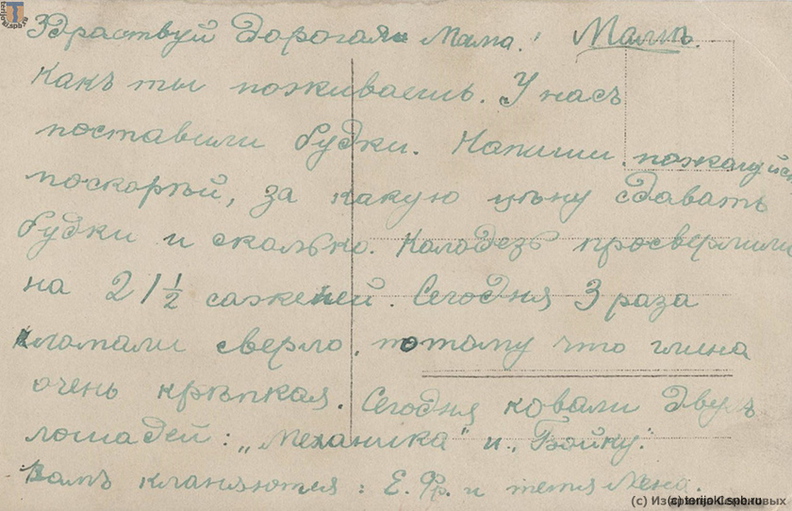 Здраствуй Дорогая Мама! Мамѣ.
Какъ ты поживаешь. У насъ
поставили будки. Напиши, пожалуйс
поскорѣй, за какую цѣну сдавать
будки и сколько. Колодезь просверлили
на 21 1/2 саженей. Сегодня 3 раза
ламали сверло, потому что глина
очень крѣпкая. Сегодня ковали двухъ
лошадей: „Механика" и „Бойку".
Вамъ кланяются: Е. Фр. и тетя Лена.
terijoki.spb.ru